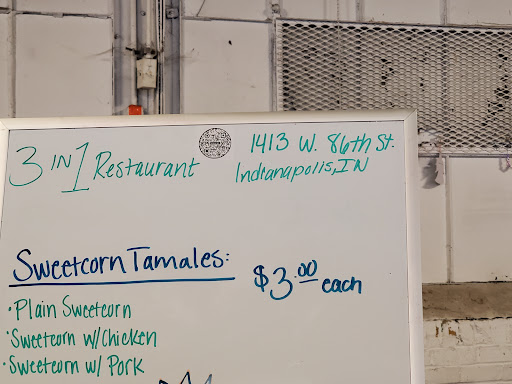 3 IN 1 Restaurant
1413 W. 86th St.
Indianapolis, IN
Sweetcorn Tamales:
$3.00 each
• Plain Sweetcorn
• Sweetcorn w/Chicken
• Sweetcorn w/ Pork